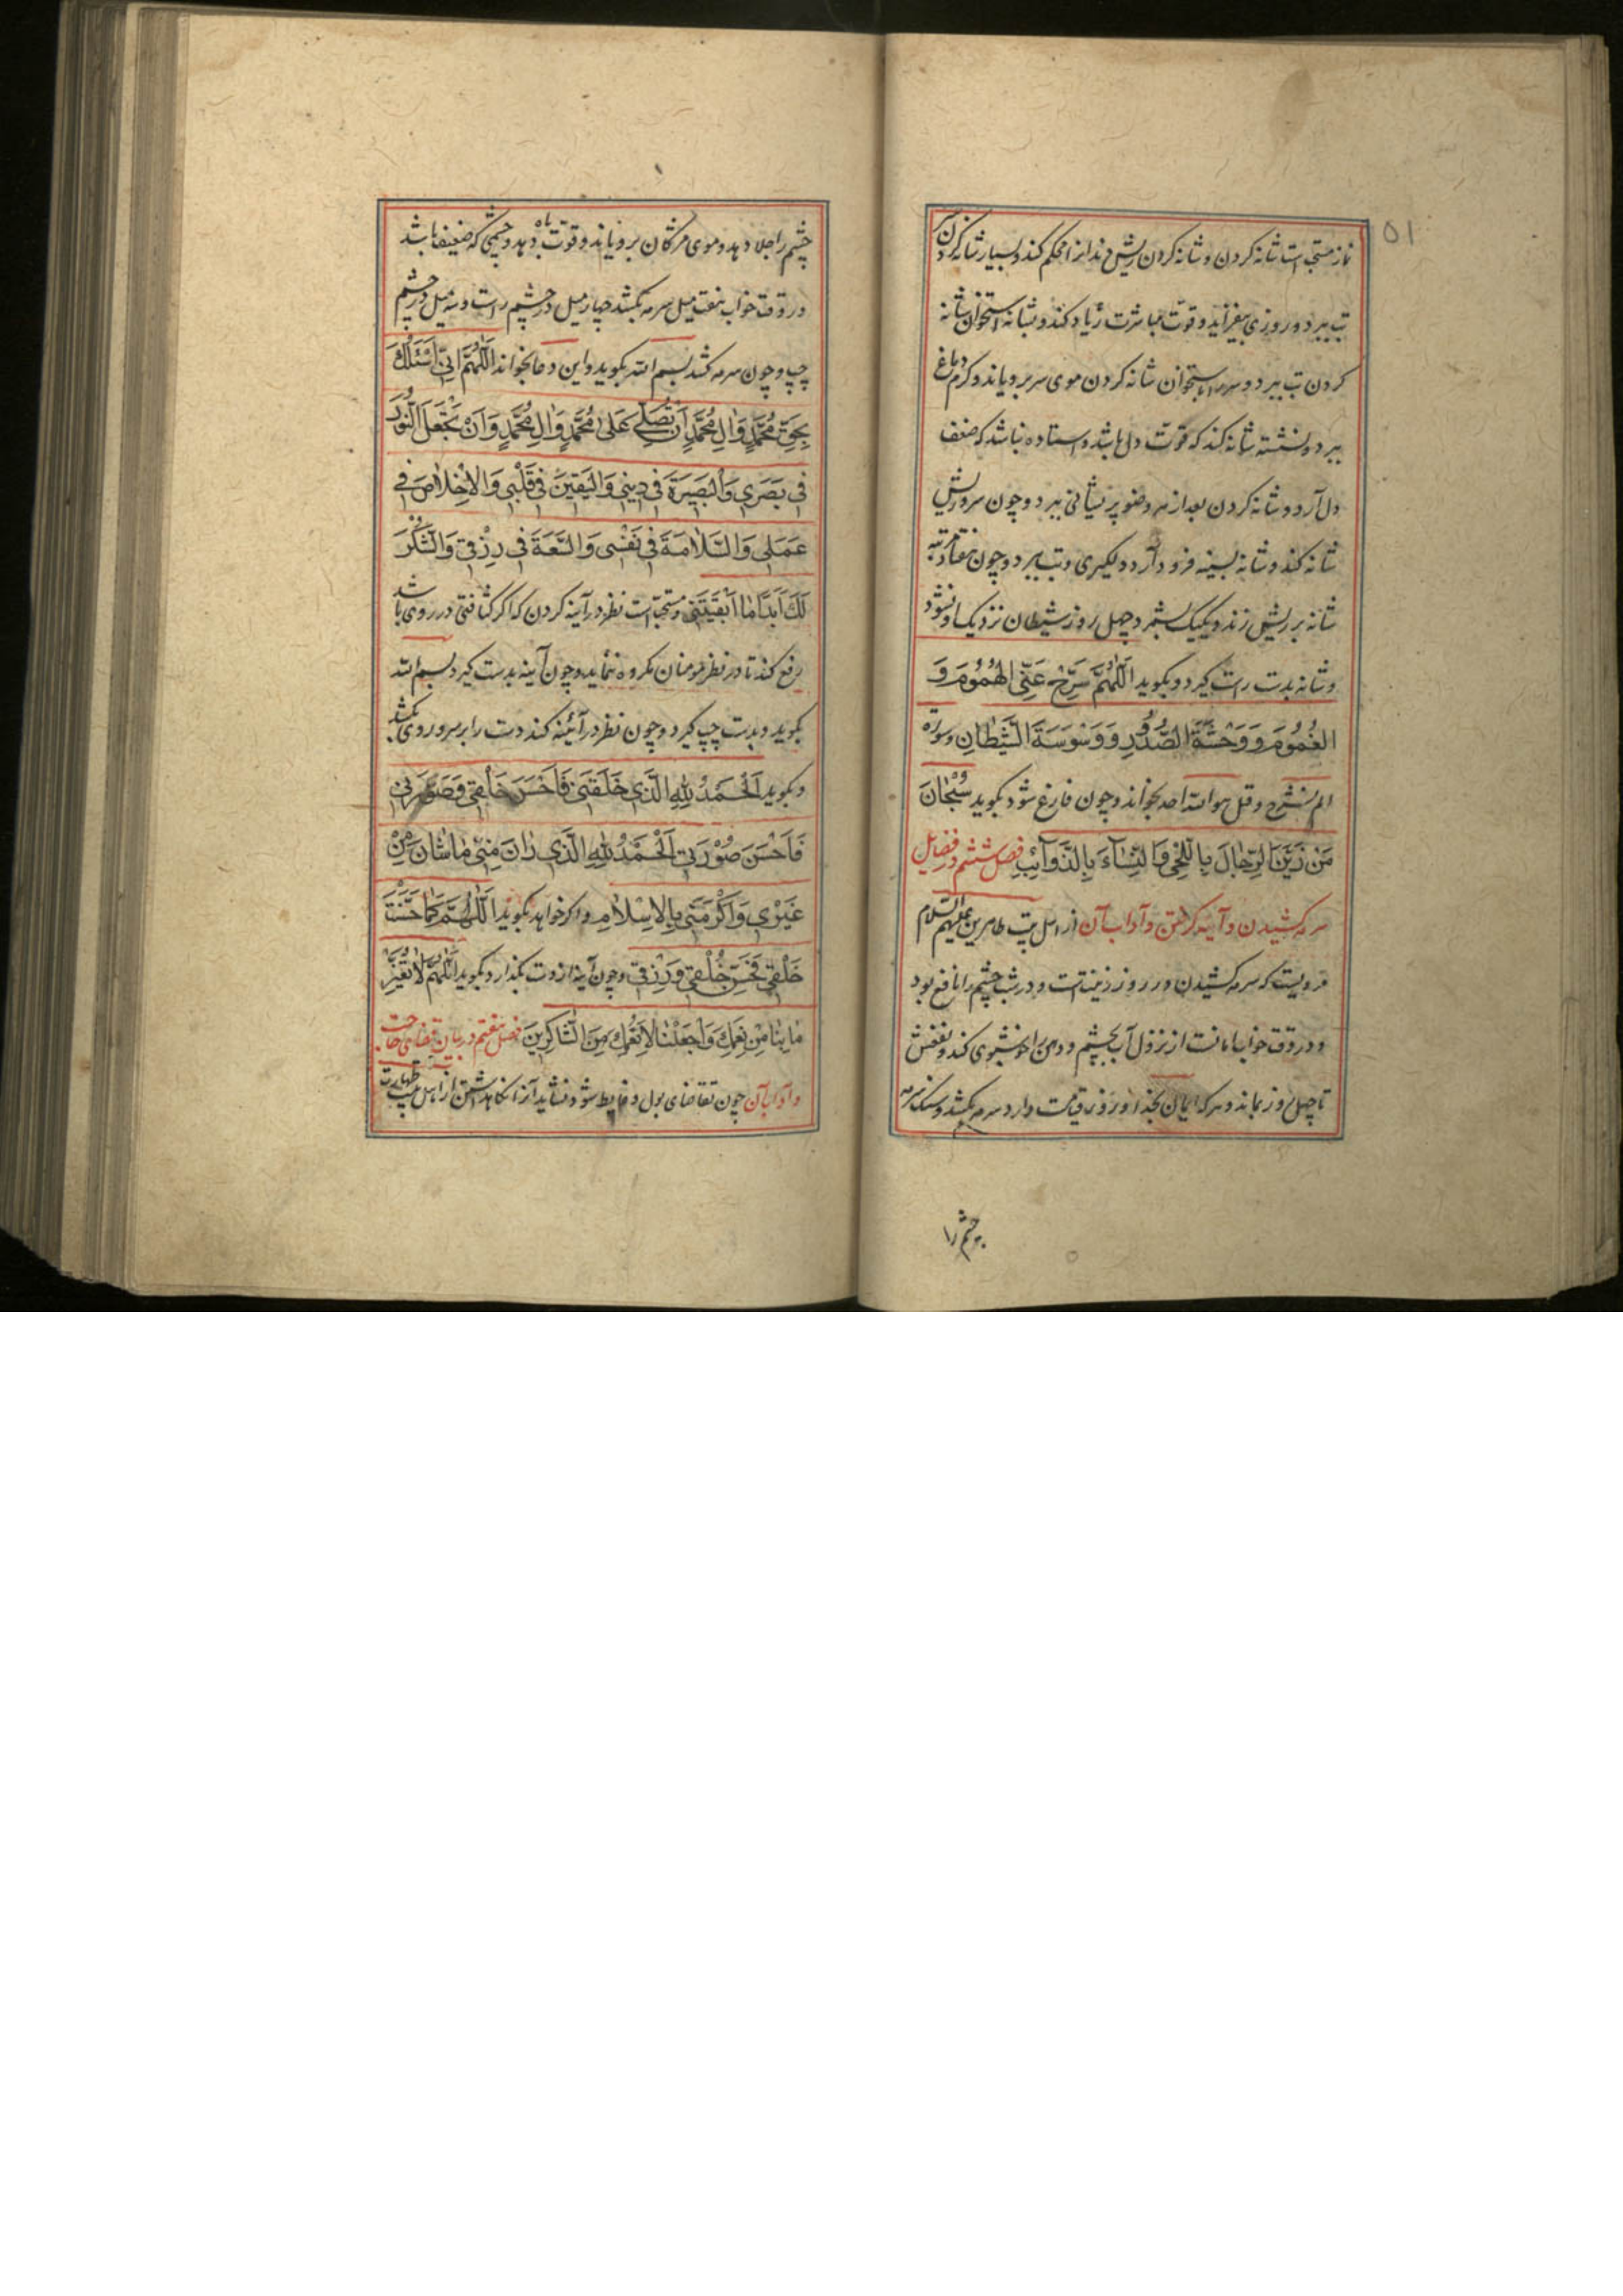 ۵۱
نماز مستحبّ است شانه کردن و شانه کردن ریش دندانرا محکم کند و بسیار شانه کردن
تب ببرد و روزی بیفزاید و قوّت مباشرت زیاد کند و بشانه استخوان شانه
کردن تب ببرد و سر را باستخوان شانه کردن موی سر برویاند و کرم دماغ
ببرد و نشسته شانه کند که قوّت دل باشد و ستاده نباشد که ضعف
دل آرد و شانه کردن بعد از هر وضو پریشانی ببرد و چون سر و ریش
شانه کند و شانه بسینه فرود آرد دلگیری و تب ببرد و چون هفتاد مرتبه
شانه بر ریش زند و یکیک بشمرد چهل روز شیطان نزدیک او نشود
و شانه بدست راست گیرد و بگوید اَللّٰهُمَّ سَرِّحْ عَنِّی الهُمُومَ وَ
الغُمُومَ وَ وَحْشَةَ الصُّدُورِ وَ وَسْوَسَةَ الشَّیْطٰانِ و سوره
الم نشرح و قل هو الله احد بخواند و چون فارغ شود بگوید سُبْحٰانَ
مَنْ زَیَّنَ الرِّجٰالَ بِاللِّحٰی وَ النِّسٰآءَ بِالذَّوٰآئِبِ فصل ششم در فضایل
سرمه کشیدن و آینه گرفتن و آداب آن از اهل بیت طاهرین علیهم السلام
مرویست که سرمه کشیدن در روز زینت است و در شب چشم را نافع بود
و در وقت خواب امانست از نزول آب بچشم و دهن را خوشبوی کند و نفعش
تا چهل روز بماند و هر که ایمان بخدا و روز قیامت دارد سرمه بکشد و سنک سرمه
چشم را
چشم را جلا دهد و موی مژگان برویاند و قوّت باه دهد و چشمی که ضعیف باشد
در وقت خواب هفت میل سرمه بکشد چهار میل در چشم راست و سه میل در چشم
چپ و چون سرمه کشد بسم الله بگوید و این دعا بخواند اَللّٰهُمَّ اِنِّی اَسْئَلُکَ
بِحَقِّ مُحَمَّدٍ وَ اٰلِ مُحَمَّدٍ اَنْ تُصَلِّیَ عَلیٰ مُحَمَّدٍ وَ اٰلِ مُحَمَّدٍ وَ اَنْ تَجْعَلَ النُّورَ
فی بَصَری وَ الْبَصیرَةَ فی دینی وَ الْیَقینَ فی قَلْبی وَ الْاِخْلٰاصَ فی
عَمَلی وَ السَّلٰامَةَ فی نَفْسی وَ السَّعَةَ فی رِزْقی وَ الشُّکْرَ
لَکَ اَبَدًا مٰا اَبْقَیْتَنی و مستحبّ است نظر در آینه کردن که اگر کثافتی در روی باشد
رفع کند تا در نظر مومنان مکروه ننماید و چون آینه بدست گیرد بسم الله
بگوید و بدست چپ گیرد و چون نظر در آئینه کند دست را بر سر و روی بکشد
و بگوید اَلْحَمْدُ لِلّٰهِ الَّذی خَلَقَنی فَاَحْسَنَ خَلْقی وَ صَوَّرَنی
فَاَحْسَنَ صُوْرَتی اَلْحَمْدُ لِلّٰهِ الَّذی زٰانَ مِنّی مٰا شٰانَ مِنْ
غَیْری وَ اَکْرَمَنی بِالْاِسْلٰامِ و اگر خواهد بگوید اَللّٰهُمَّ کَمٰا حَسَّنْتَ
خَلْقی فَحَسِّنْ خُلْقی وَ رِزْقی و چون آینه از دست بگذارد بگوید اَللّٰهُمَّ لٰا تُغَیِّرْ
مٰا بِنٰا مِنْ نِعَمِکَ وَ اجْعَلْنٰا لِاَنْعُمِکَ مِنَ الشّٰاکِرینَ فصل هفتم در بیان قضای حاجت
و آداب آن چون تقاضای بول و غایط شود نشاید آنرا نگاهداشتن از اهل بیت طهارت